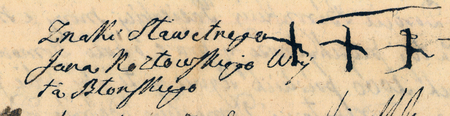 Znaki Sławetnego + + +
Jana Kozłowskiego Wóy
ta Błonskiego